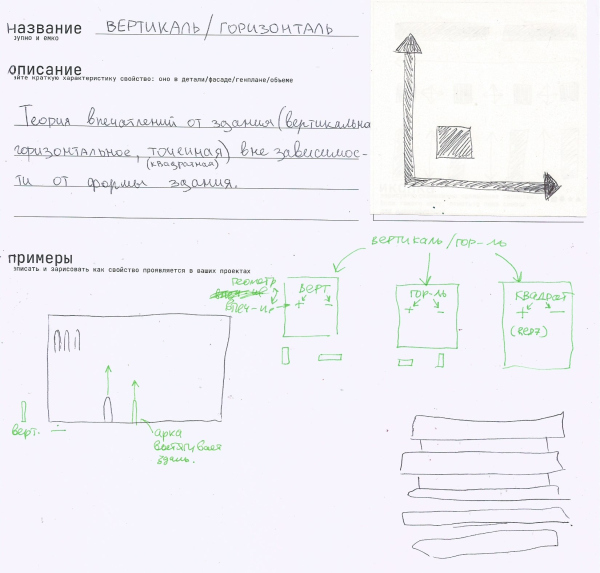 название ВЕРТИКАЛЬ/ГОРИЗОНТАЛЬ
зупно и емко
описание
зйте краткую характеристику свойство: оно в детали/фасаде/генплане/объеме
Теория впечатлений от здания (вертикальна
горизонтальное, точечная) вне зависимос-
(квадратная)
ти от формы здания.
примеры
зписать и зарисовать как свойство проявляется в ваших проектах
ВЕРТИКАЛЬ/ГОР-ЛЬ
геометр
впеч-ия
ВЕРТ
+ -
ГОР-ЛЬ
+ -
КВАДРАТ
+ -
верт.
арка
вытягивает